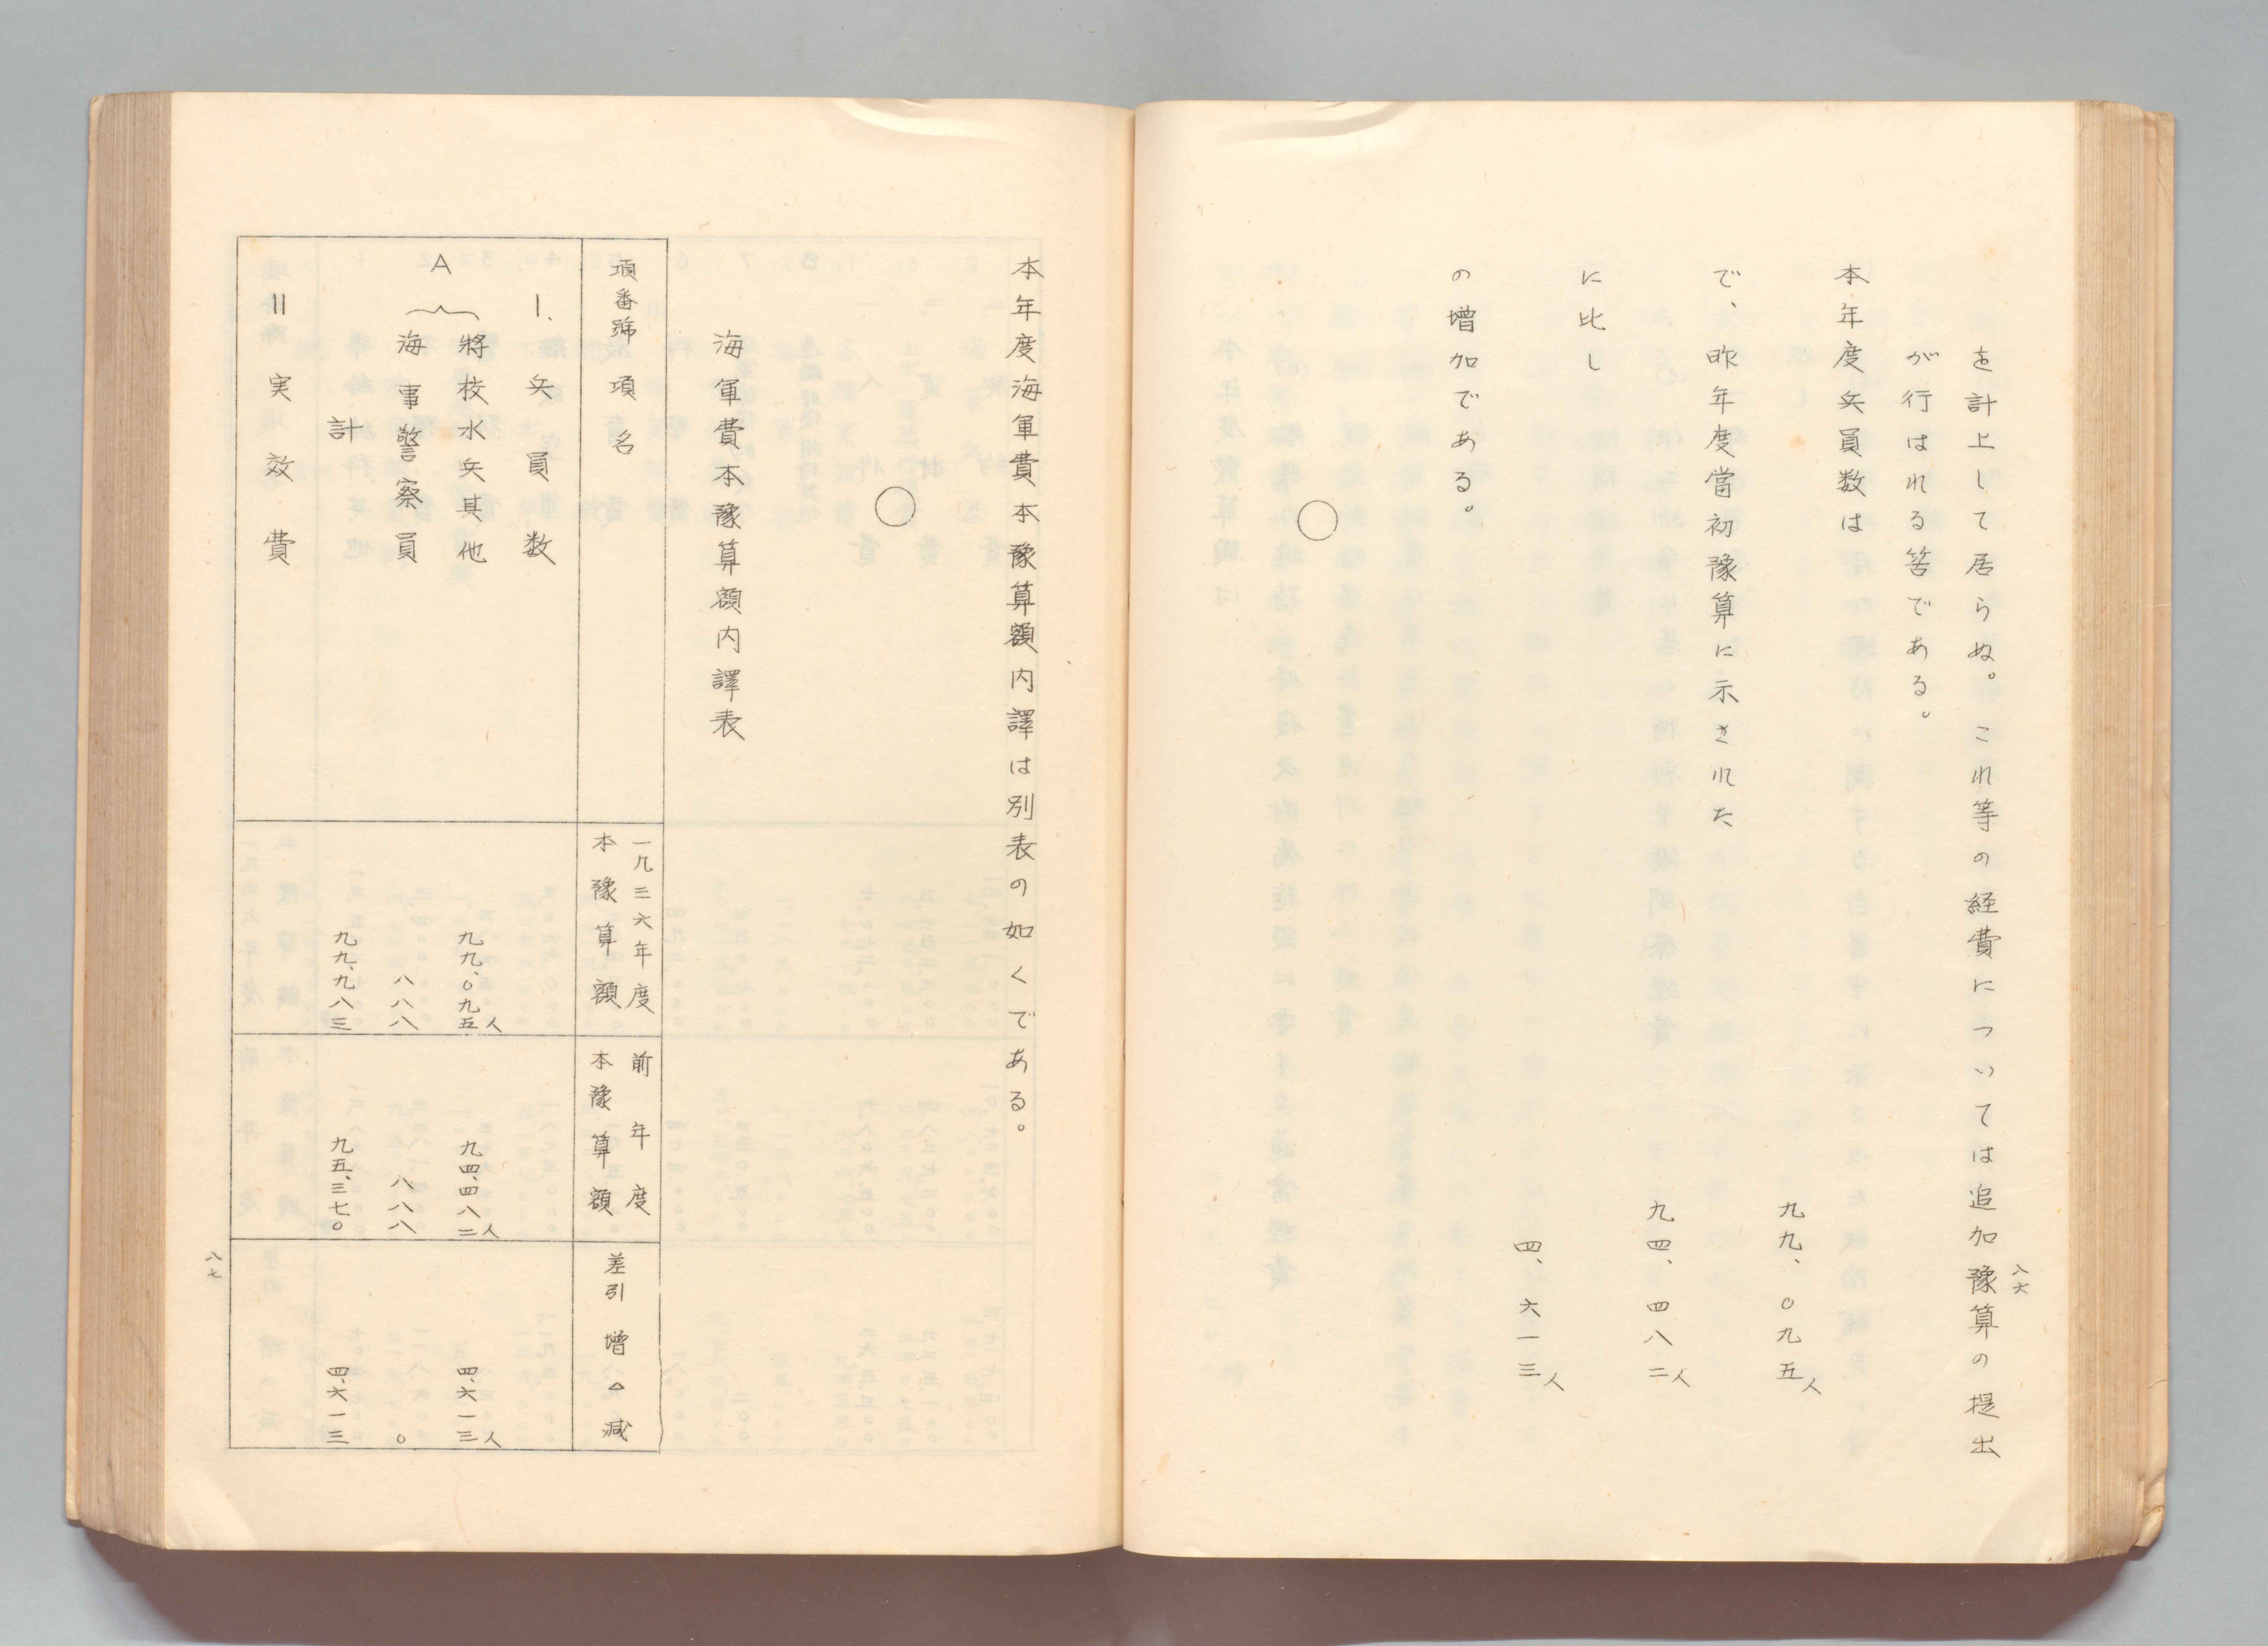 八六
を計上して居らぬ。これ等の経費については追加豫算の提出
が行はれる筈である。
本年度兵員数は
九九、〇九五人
で、昨年度當初豫算に示された
九四、四八二人
に比し
四、六一三人
の増加である。
本年度海軍費本豫算額内譯は別表の如くである。
海軍費本豫算額内譯表
項番號 項名
一九三六年度
本豫算額
前年度
本豫算額
差引 増△減
I、兵員数
A
將校水兵其他 九九、〇九五人 九四、四八二人 四、六一三人
海事警察員 八八八 八八八 〇
計 九九、九八三 九五、三七〇 四、六一三
II 実效費
八七